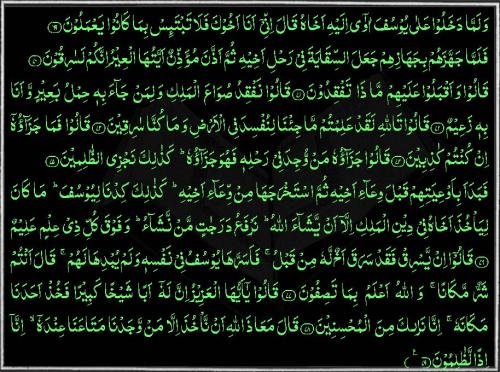 وَلَمَّا دَخَلُوْا عَلٰى يُوْسُفَ اٰوٰٓى اِلَيْهِ اَخَاهُ قَالَ اِنِّىْٓ اَنَا اَخُوْكَ فَلَا تَبْتَئِسْ بِمَا كَانُوْا يَعْمَلُوْنَ ﴿٦٩﴾
فَلَمَّا جَهَّزَهُمْ بِجَهَازِهِمْ جَعَلَ السِّقَايَةَ فِىْ رَحْلِ اَخِيْهِ ثُمَّ اَذَّنَ مُؤَذِّنٌ اَيَّتُهَا الْعِيْرُ اِنَّكُمْ لَسٰرِقُوْنَ ﴿٧٠﴾
قَالُوْا وَاَقْبَلُوْا عَلَيْهِمْ مَّا ذَا تَفْقِدُوْنَ ﴿٧١﴾ قَالُوْا نَفْقِدُ صُوَاعَ الْمَلِكِ وَلِمَنْ جَآءَ بِهٖ حِمْلُ بَعِيْرٍ وَّاَنَا
بِهٖ زَعِيْمٌ ﴿٧٢﴾ قَالُوْا تَاللّٰهِ لَقَدْ عَلِمْتُمْ مَّا جِئْنَا لِنُفْسِدَ فِى الْاَرْضِ وَمَا كُنَّا سٰرِقِيْنَ ﴿٧٣﴾ قَالُوْا فَمَا جَزَآؤُهٗٓ
اِنْ كُنْتُمْ كٰذِبِيْنَ ﴿٧٤﴾ قَالُوْا جَزَآؤُهٗ مَنْ وُّجِدَ فِىْ رَحْلِهٖ فَهُوَ جَزَآؤُهٗ ؕ كَذٰلِكَ نَجْزِى الظّٰلِمِيْنَ ﴿٧٥﴾
فَبَدَاَ بِاَوْعِيَتِهِمْ قَبْلَ وِعَآءِ اَخِيْهِ ثُمَّ اسْتَخْرَجَهَا مِنْ وِّعَآءِ اَخِيْهِ ؕ كَذٰلِكَ كِدْنَا لِيُوْسُفَ ؕ مَا كَانَ
لِيَاْخُذَ اَخَاهُ فِىْ دِيْنِ الْمَلِكِ اِلَّاۤ اَنْ يَّشَآءَ اللّٰهُ ؕ نَرْفَعُ دَرَجٰتٍ مَّنْ نَّشَآءُ ؕ وَفَوْقَ كُلِّ ذِىْ عِلْمٍ عَلِيْمٌ
﴿٧٦﴾ قَالُوْۤا اِنْ يَّسْرِقْ فَقَدْ سَرَقَ اَخٌ لَّهٗ مِنْ قَبْلُ ۚ فَاَسَرَّهَا يُوْسُفُ فِىْ نَفْسِهٖ وَلَمْ يُبْدِهَا لَهُمْ ۚ قَالَ اَنْتُمْ
شَرٌّ مَّكَانًا ۚ وَاللّٰهُ اَعْلَمُ بِمَا تَصِفُوْنَ ﴿٧٧﴾ قَالُوْا يٰۤاَيُّهَا الْعَزِيْزُ اِنَّ لَهٗۤ اَبًا شَيْخًا كَبِيْرًا فَخُذْ اَحَدَنَا
مَكَانَهٗ ۚ اِنَّا نَرٰٮكَ مِنَ الْمُحْسِنِيْنَ ﴿٧٨﴾ قَالَ مَعَاذَ اللّٰهِ اَنْ نَّاْخُذَ اِلَّا مَنْ وَّجَدْنَا مَتَاعَنَا عِنْدَهٗۤ ۙ اِنَّاۤ
اِذًا لَّظٰلِمُوْنَ ﴿٧٩﴾